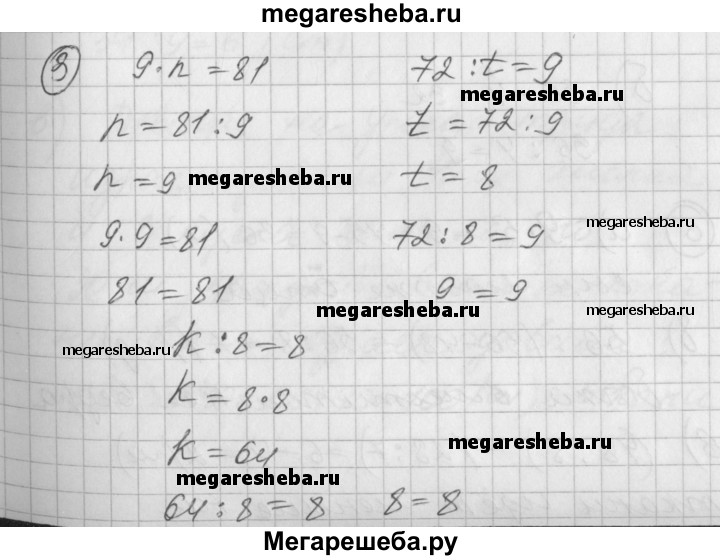 megaresheba.ru
8 9·n=81 72:t=9
megaresheba.ru
n=81:9 t=72:9
n=9 megaresheba.ru t=8
megaresheba.ru
9·9=81 72:8=9
81=81 9=9
megaresheba.ru megaresheba.ru
megaresheba.ru k:8=8
k=8·8
k=64 megaresheba.ru
megaresheba.ru
64:8=8 8=8
Мегарешеба.ру